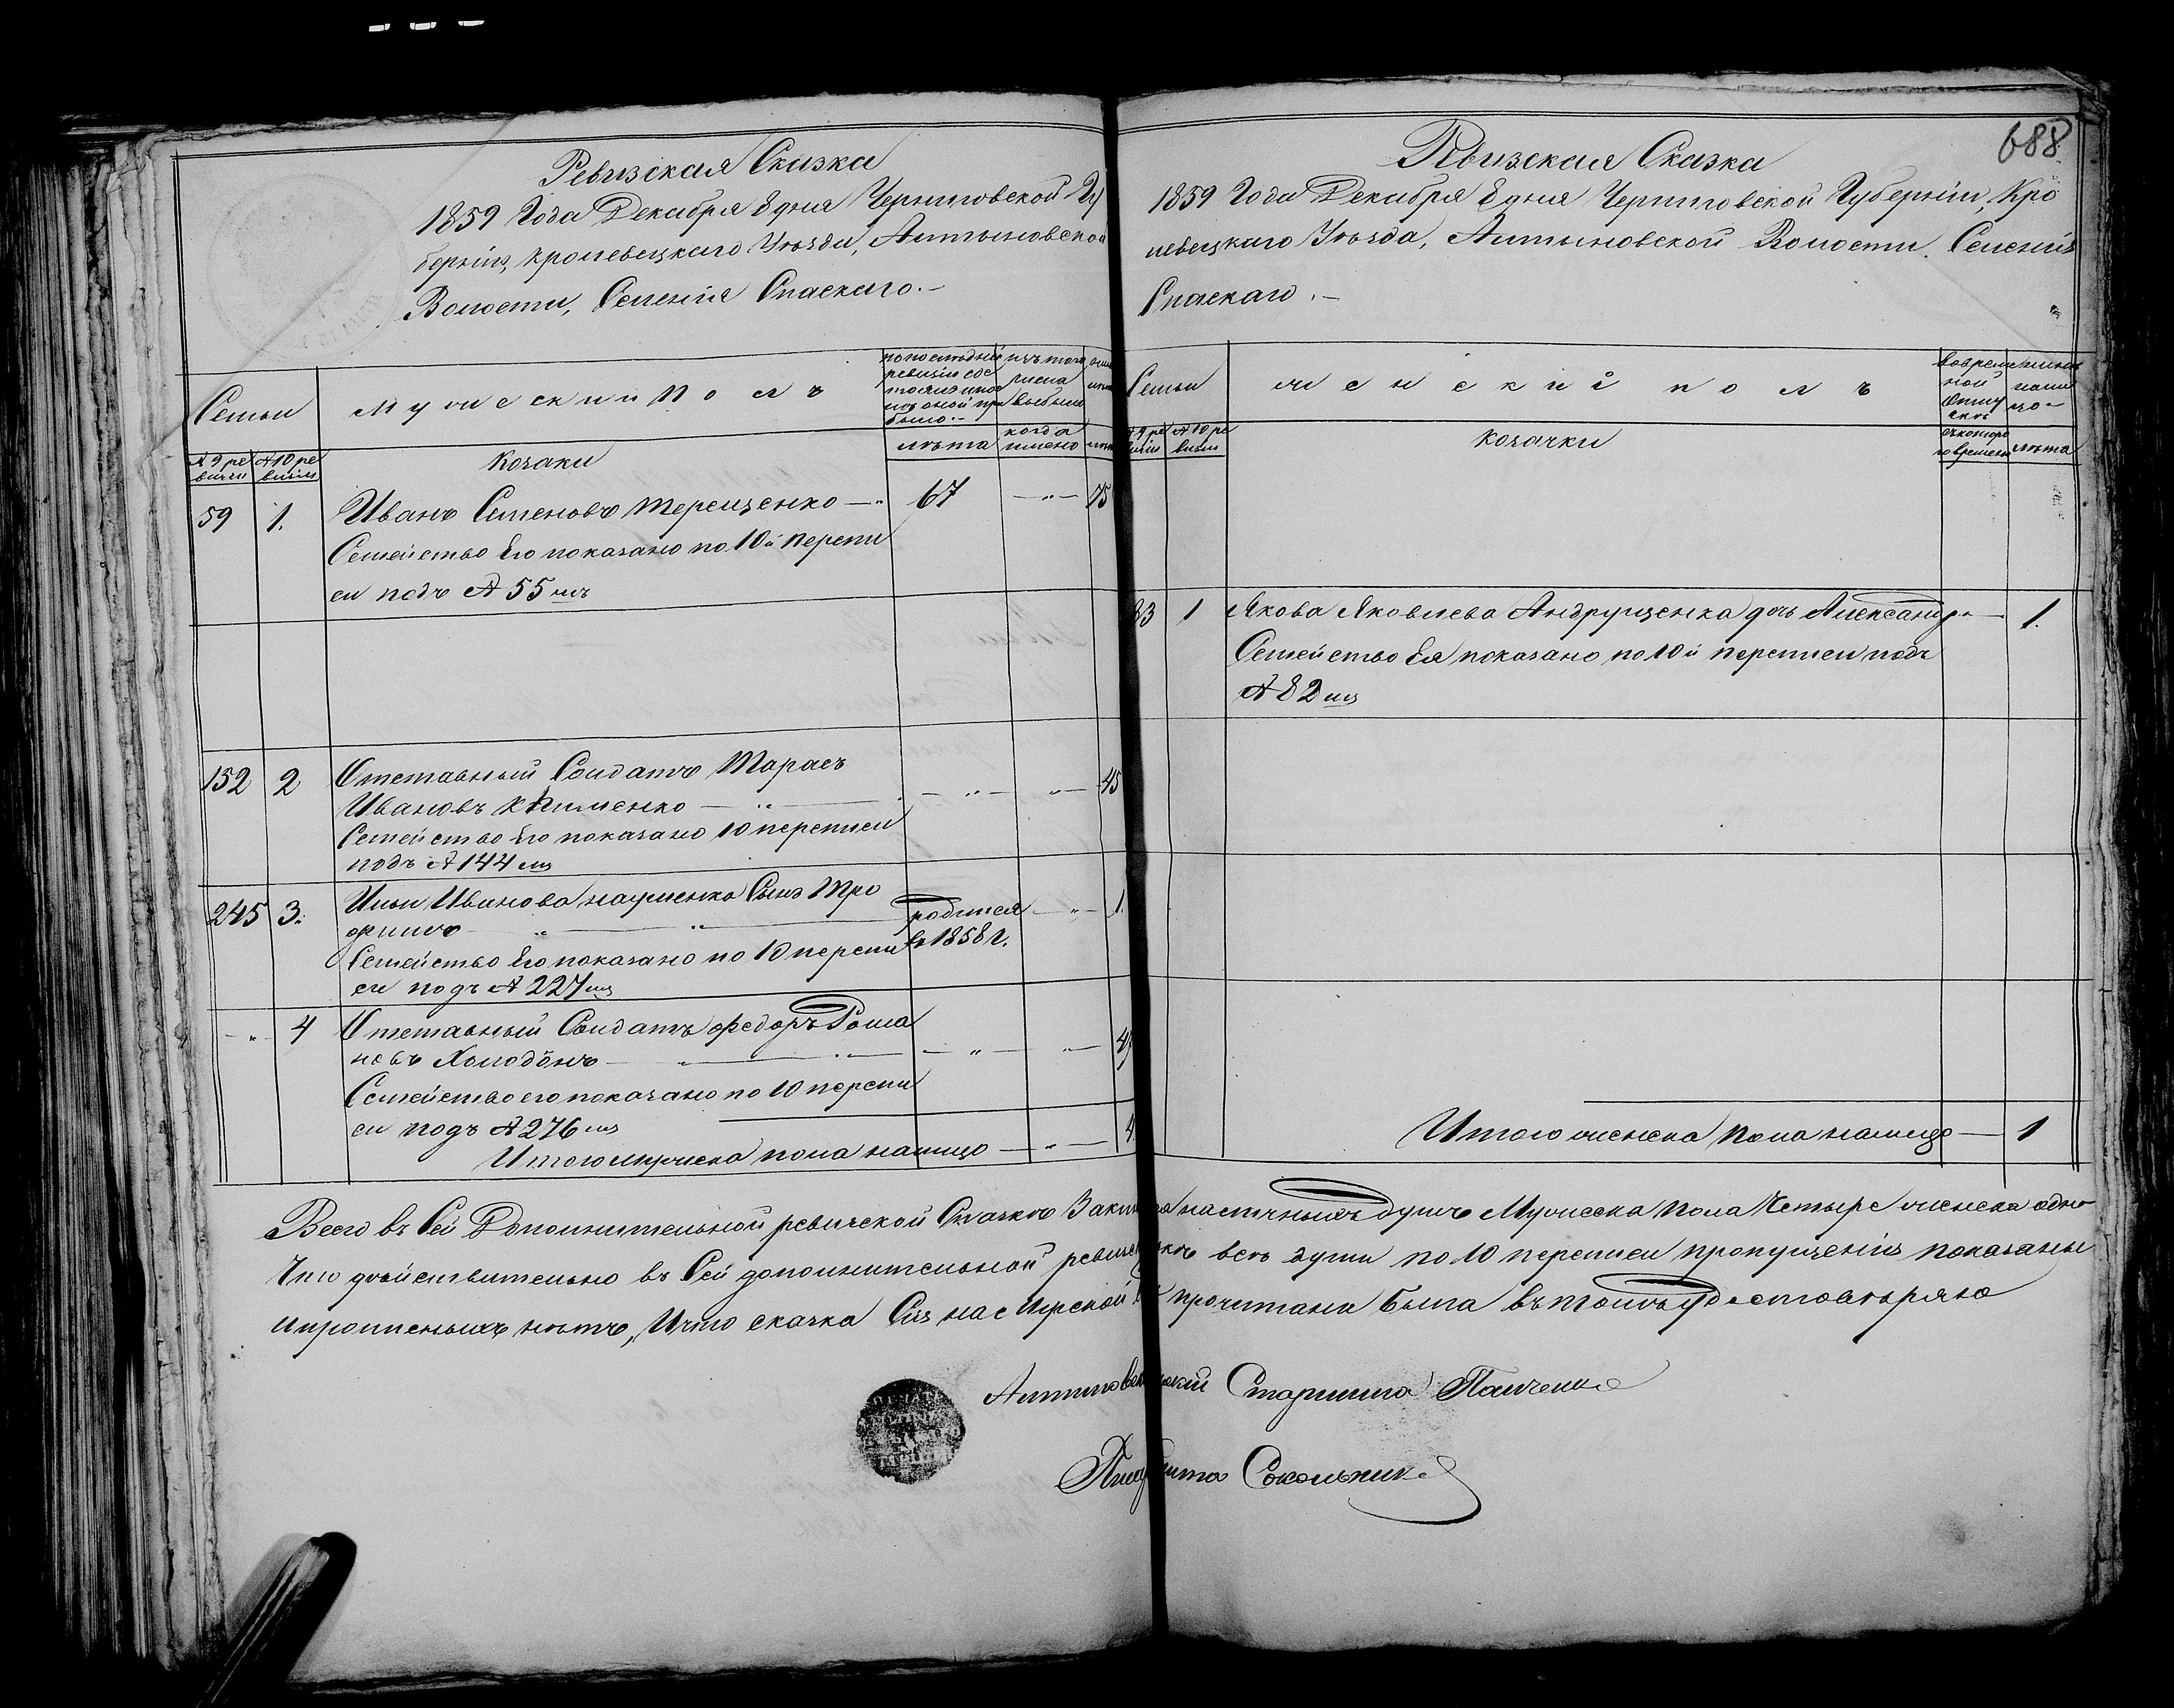 688
Ревизская Сказка
1859 Года Декабря 8 дня Черниговской Гу
берніи, Кролевецкаго Уѣзда, Алтыновской
Волости, Селенія Спаскаго.-
Семьи
Мужеский Полъ
по последней
ревизіи сос
тояло и пос
лѣ оной при
было.-
изъ того
числа
выбыло
лѣта
когда
имено
№ 9 ре
визіи
№ 10 ре
визіи
Козаки
59 1. Иванъ Семеновъ Терещенко — 67 — " — 75
Семейство Его показано по 10й перепи
си подъ № 55мъ
152 2 Отставный Солдатъ Тарасъ
Ивановъ Клименко — " — " — " — 45
Семейство Его показано 10 переписи
подъ № 144мъ
245 3. Ильи Иванова Науменка Сынъ Тро
фимъ родился — " — 1.
в 1858 г.
Семейство Его показано по 10 перепи
си подъ № 227мъ
— " — 4 Отставный Солдатъ Федоръ Рома
новъ Холодонъ — " — " —
Семейство его показано по 10 перепи
си подъ № 276мъ
Итого мужеска пола налицо — " — 4.
Ревизская Сказка
1859 Года Декабря 8 дня Черниговской Губерніи, Кро
левецкаго Уѣзда, Алтыновской Волости, Селенія
Спаскаго.-
Семьи
женскій полъ
Во времен
ной
Отлу
чкѣ
нали
цо-
№ 9 ре
визіи
№ 10 ре
визіи
козачки
съ котора
го времени
лѣта
83 1 Якова Яковлева Андрущенка дочь Александра — 1.
Семейство Ея показано по 10й переписи подъ
№ 82мъ
Итого женска пола налицо — 1
Всего въ Сей Дополнительной ревизской Сказкѣ наличныхъ душъ Мужеска пола Четыре женска одно
Что дѣйствительно въ Сей дополнительной всѣ души по 10 переписи пропущенія показаны
нѣтъ, И что сказка Сія на Мирской прочитана была въ томъ удостовѣряю
Алтыновскій Старшина Панченко
Сокольник